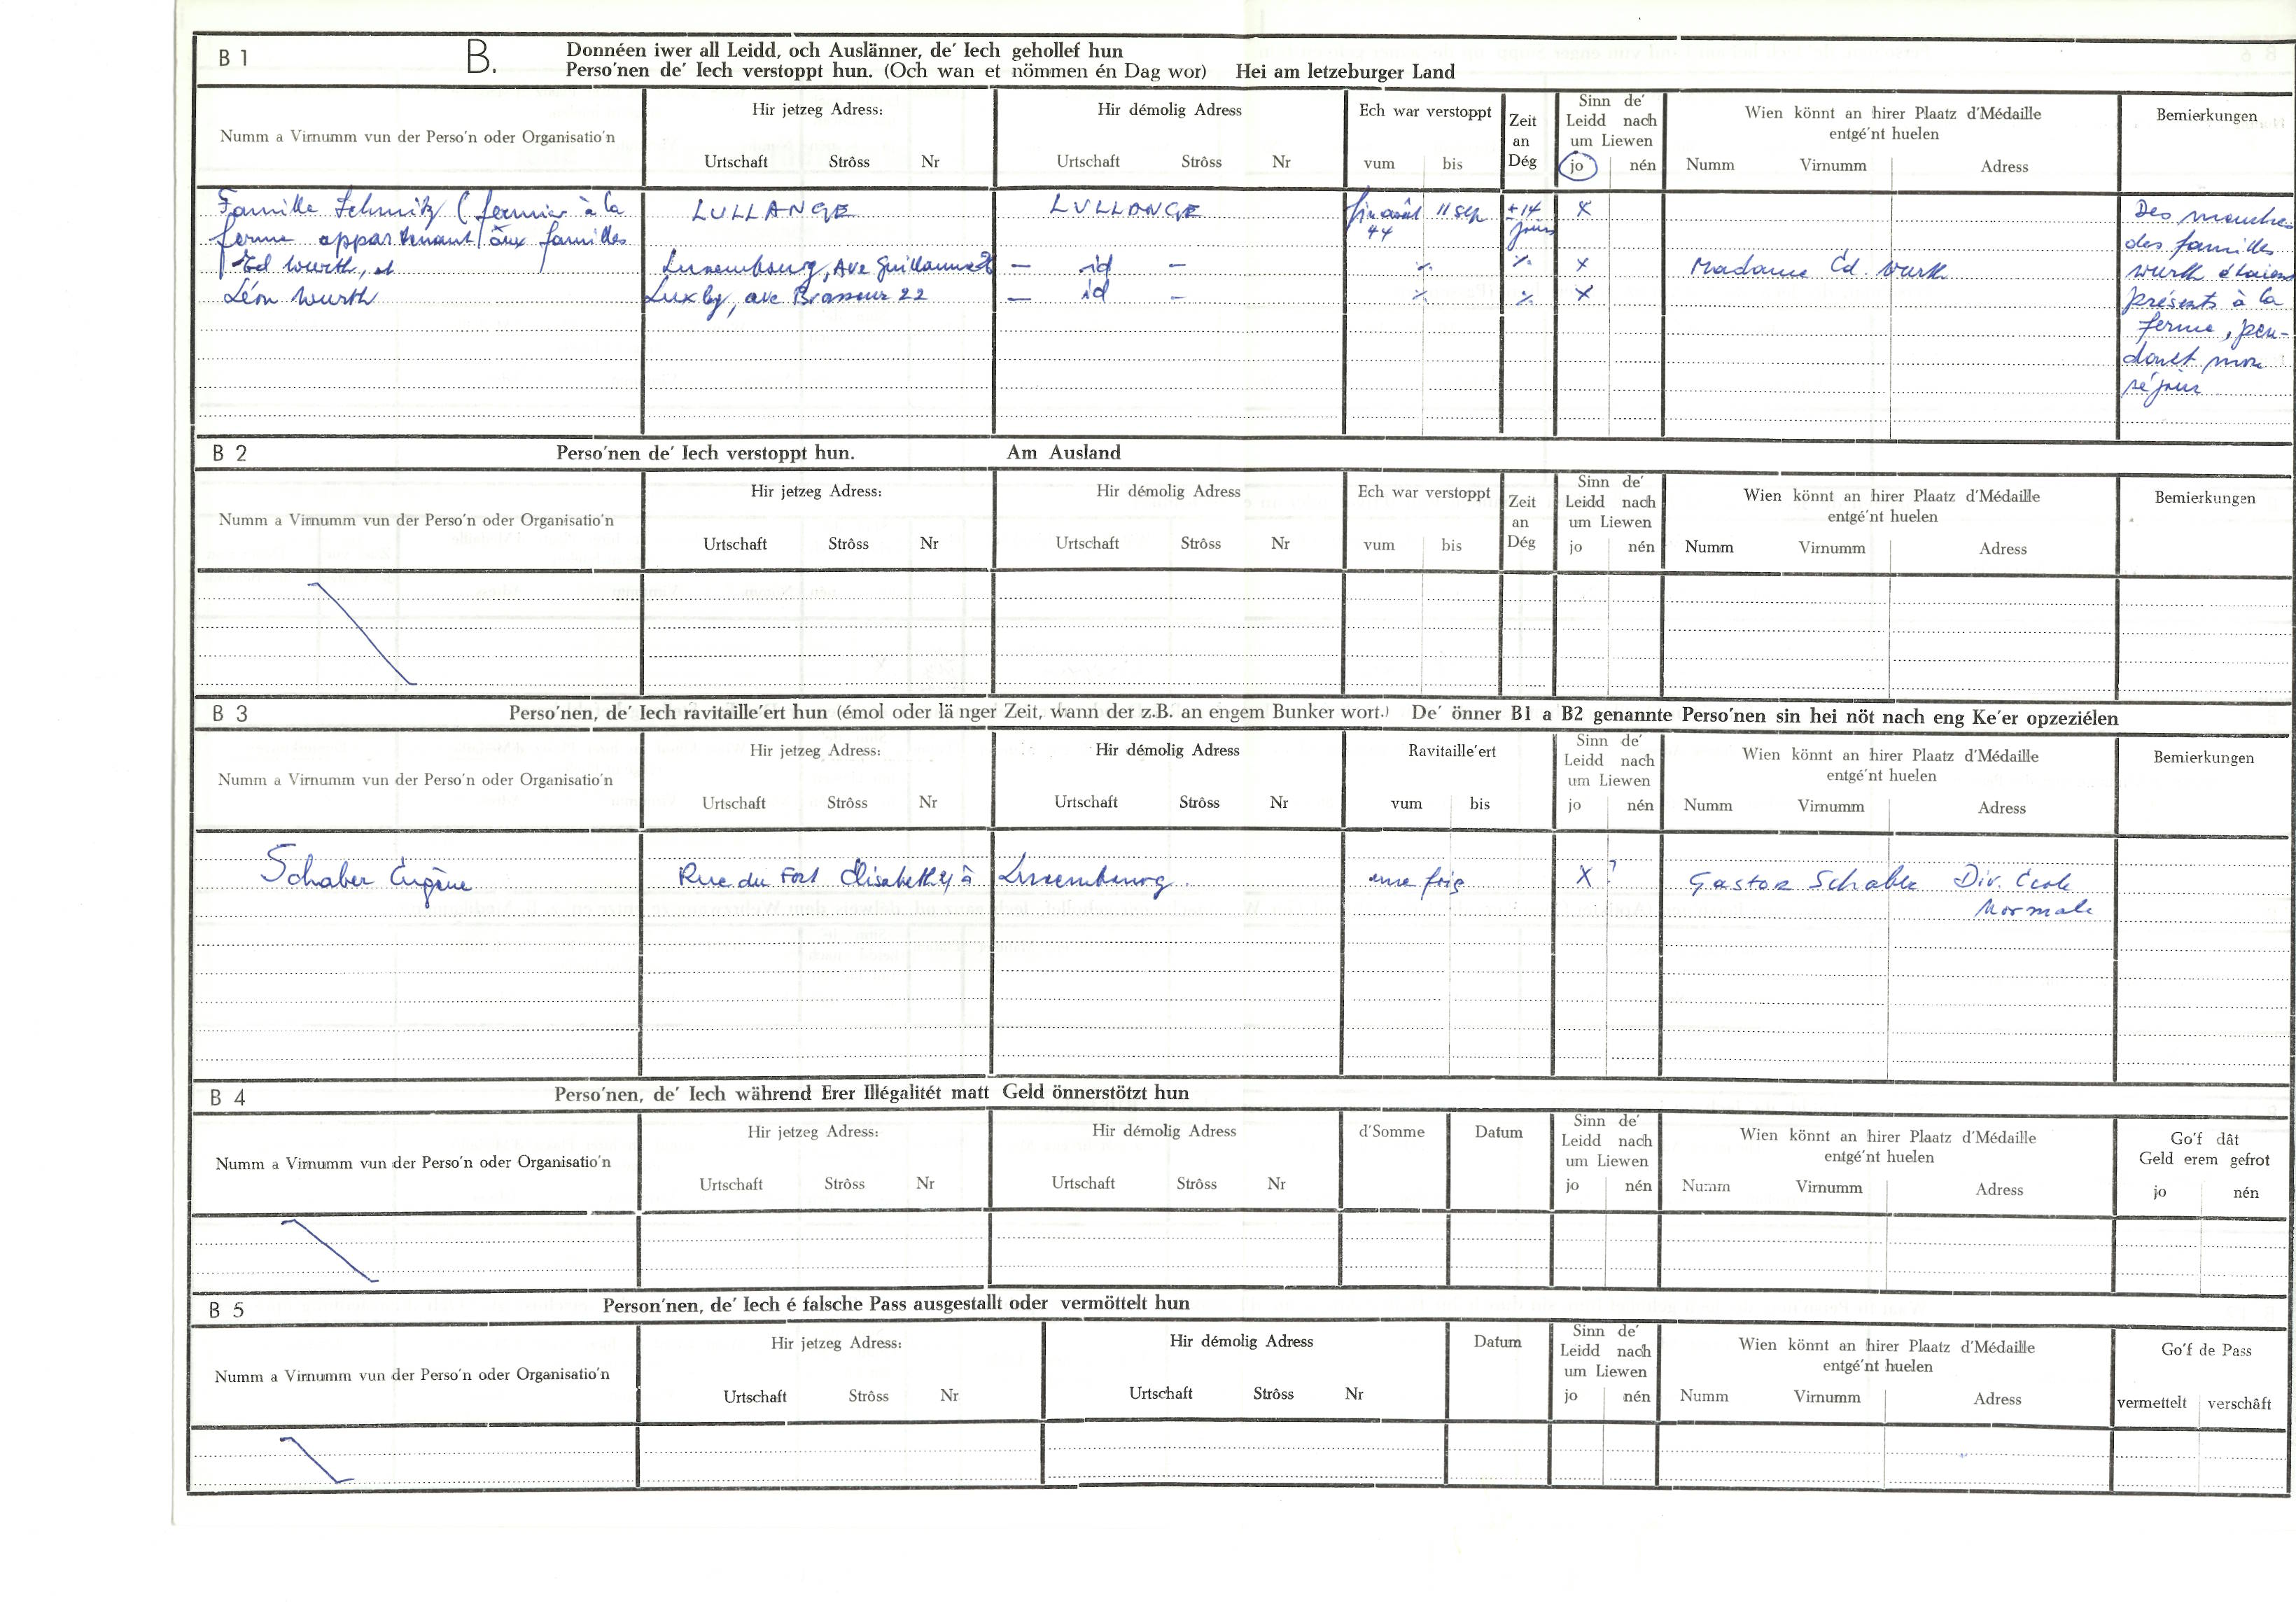 B 1 B. Donnéen iwer all Leidd, och Auslänner, de' Iech gehollef hun
Perso'nen de' Iech verstoppt hun. (Och wan et nömmen én Dag wor) Hei am letzeburger Land
Numm a Virnumm vun der Perso'n oder Organisatio'n
Hir jetzeg Adress:
Urtschaft Strôss Nr
Hir démolig Adress
Urtschaft Strôss Nr
Ech war verstoppt
vum bis
Zeit
an
Dég
Sinn de'
Leidd nach
um Liewen
jo nén
Wien könnt an hirer Plaatz d'Médaille
entgé'nt huelen
Numm Virnumm Adress
Bemierkungen
Famille Schmitz (fermier à la LULLANGE LULLANGE fin août 11 sep ±14 x
ferme appartenant aux familles 44 jours
Ed Wurth, et Luxembourg, Ave Guillaume — id — ٪ ٪ x Madame Ed. Wurth
Léon Wurth Luxbg, ave Brasseur 22 — id — ٪ ٪ x
Des membres
des familles
Wurth étaient
présents à la
ferme, pen-
dant mon
séjour
B 2 Perso'nen de' Iech verstoppt hun. Am Ausland
Numm a Virnumm vun der Perso'n oder Organisatio'n
Hir jetzeg Adress:
Urtschaft Strôss Nr
Hir démolig Adress
Urtschaft Strôss Nr
Ech war verstoppt
vum bis
Zeit
an
Dég
Sinn de'
Leidd nach
um Liewen
jo nén
Wien könnt an hirer Plaatz d'Médaille
entgé'nt huelen
Numm Virnumm Adress
Bemierkungen
B 3 Perso'nen, de' Iech ravitaille'ert hun (émol oder lä nger Zeit, wann der z.B. an engem Bunker wort.) De' önner B1 a B2 genannte Perso'nen sin hei nöt nach eng Ke'er opzeziélen
Numm a Virnumm vun der Perso'n oder Organisatio'n
Hir jetzeg Adress:
Urtschaft Strôss Nr
Hir démolig Adress
Urtschaft Strôss Nr
Ravitaille'ert
vum bis
Sinn de'
Leidd nach
um Liewen
jo nén
Wien könnt an hirer Plaatz d'Médaille
entgé'nt huelen
Numm Virnumm Adress
Bemierkungen
Schaber Eugène Rue du Fort Elisabeth à Luxembourg. une fois X ? Gaston Schaber Dir. Ecole
Normale
B 4 Perso'nen, de' Iech während Erer Illégalitét matt Geld önnerstötzt hun
Numm a Virnumm vun der Perso'n oder Organisatio'n
Hir jetzeg Adress:
Urtschaft Strôss Nr
Hir démolig Adress
Urtschaft Strôss Nr
d'Somme
Datum
Sinn de'
Leidd nach
um Liewen
jo nén
Wien könnt an hirer Plaatz d'Médaille
entgé'nt huelen
Numm Virnumm Adress
Go'f dât
Geld erem gefrot
jo nén
B 5 Person'nen, de' Iech é falsche Pass ausgestallt oder vermöttelt hun
Numm a Virnumm vun der Perso'n oder Organisatio'n
Hir jetzeg Adress:
Urtschaft Strôss Nr
Hir démolig Adress
Urtschaft Strôss Nr
Datum
Sinn de'
Leidd nach
um Liewen
jo nén
Wien könnt an hirer Plaatz d'Médaille
entgé'nt huelen
Numm Virnumm Adress
Go'f de Pass
vermettelt verschâft